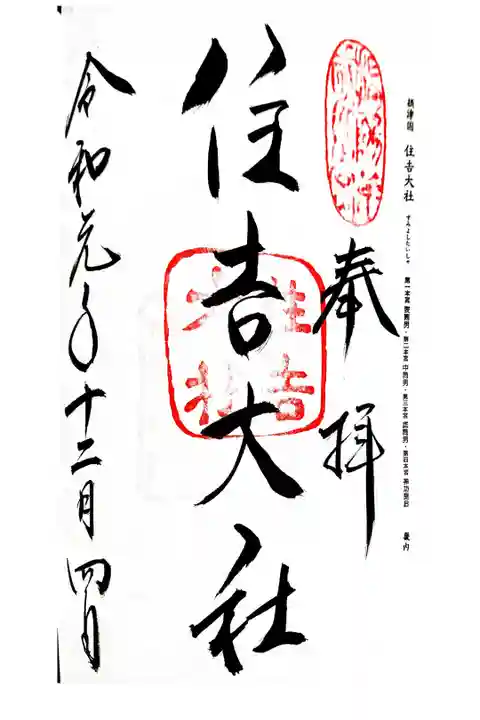 摂津国 住吉大社 すみよしたいしゃ 第一本宮 底筒男・第二本宮 中筒男・第三本宮 表筒男・第四本宮 神功皇后 畿内
奉拝
住吉大社
住吉
大社
令和元年十二月四日